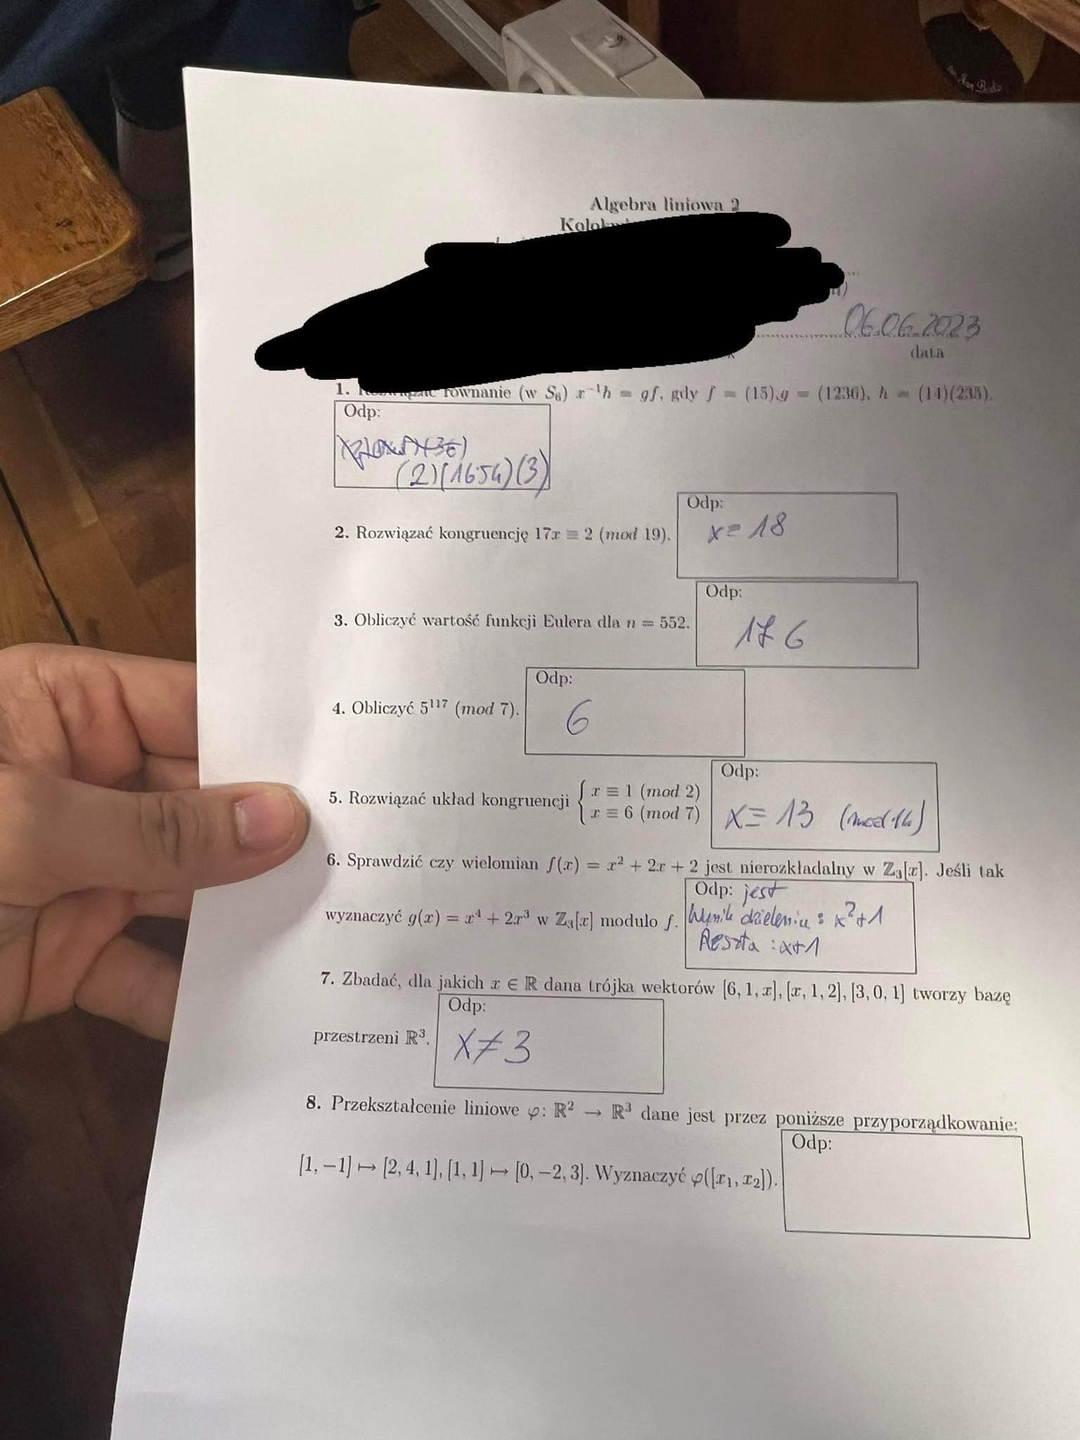 Algebra liniowa 2
06.06.2023
data
1. równanie (w S₆) x⁻¹h = gf, gdy f = (15), g = (1236), h = (14)(235).
Odp:
(2)(1654)(3)
2. Rozwiązać kongruencję 17x ≡ 2 (mod 19).
Odp:
x = 18
3. Obliczyć wartość funkcji Eulera dla n = 552.
Odp:
176
4. Obliczyć 5¹¹⁷ (mod 7).
Odp:
6
5. Rozwiązać układ kongruencji { x ≡ 1 (mod 2)
x ≡ 6 (mod 7)
Odp:
x ≡ 13 (mod 14)
6. Sprawdzić czy wielomian f(x) = x² + 2x + 2 jest nierozkładalny w ℤ₃[x]. Jeśli tak
wyznaczyć g(x) = x⁴ + 2x³ w ℤ₃[x] modulo f.
Odp: jest
Wynik dzielenia : x²+1
Reszta : x+1
7. Zbadać, dla jakich x ∈ ℝ dana trójka wektorów [6, 1, x], [x, 1, 2], [3, 0, 1] tworzy bazę
przestrzeni ℝ³.
Odp:
x ≠ 3
8. Przekształcenie liniowe φ: ℝ² → ℝ³ dane jest przez poniższe przyporządkowanie:
[1, −1] ↦ [2, 4, 1], [1, 1] ↦ [0, −2, 3]. Wyznaczyć φ([x₁, x₂]).
Odp: